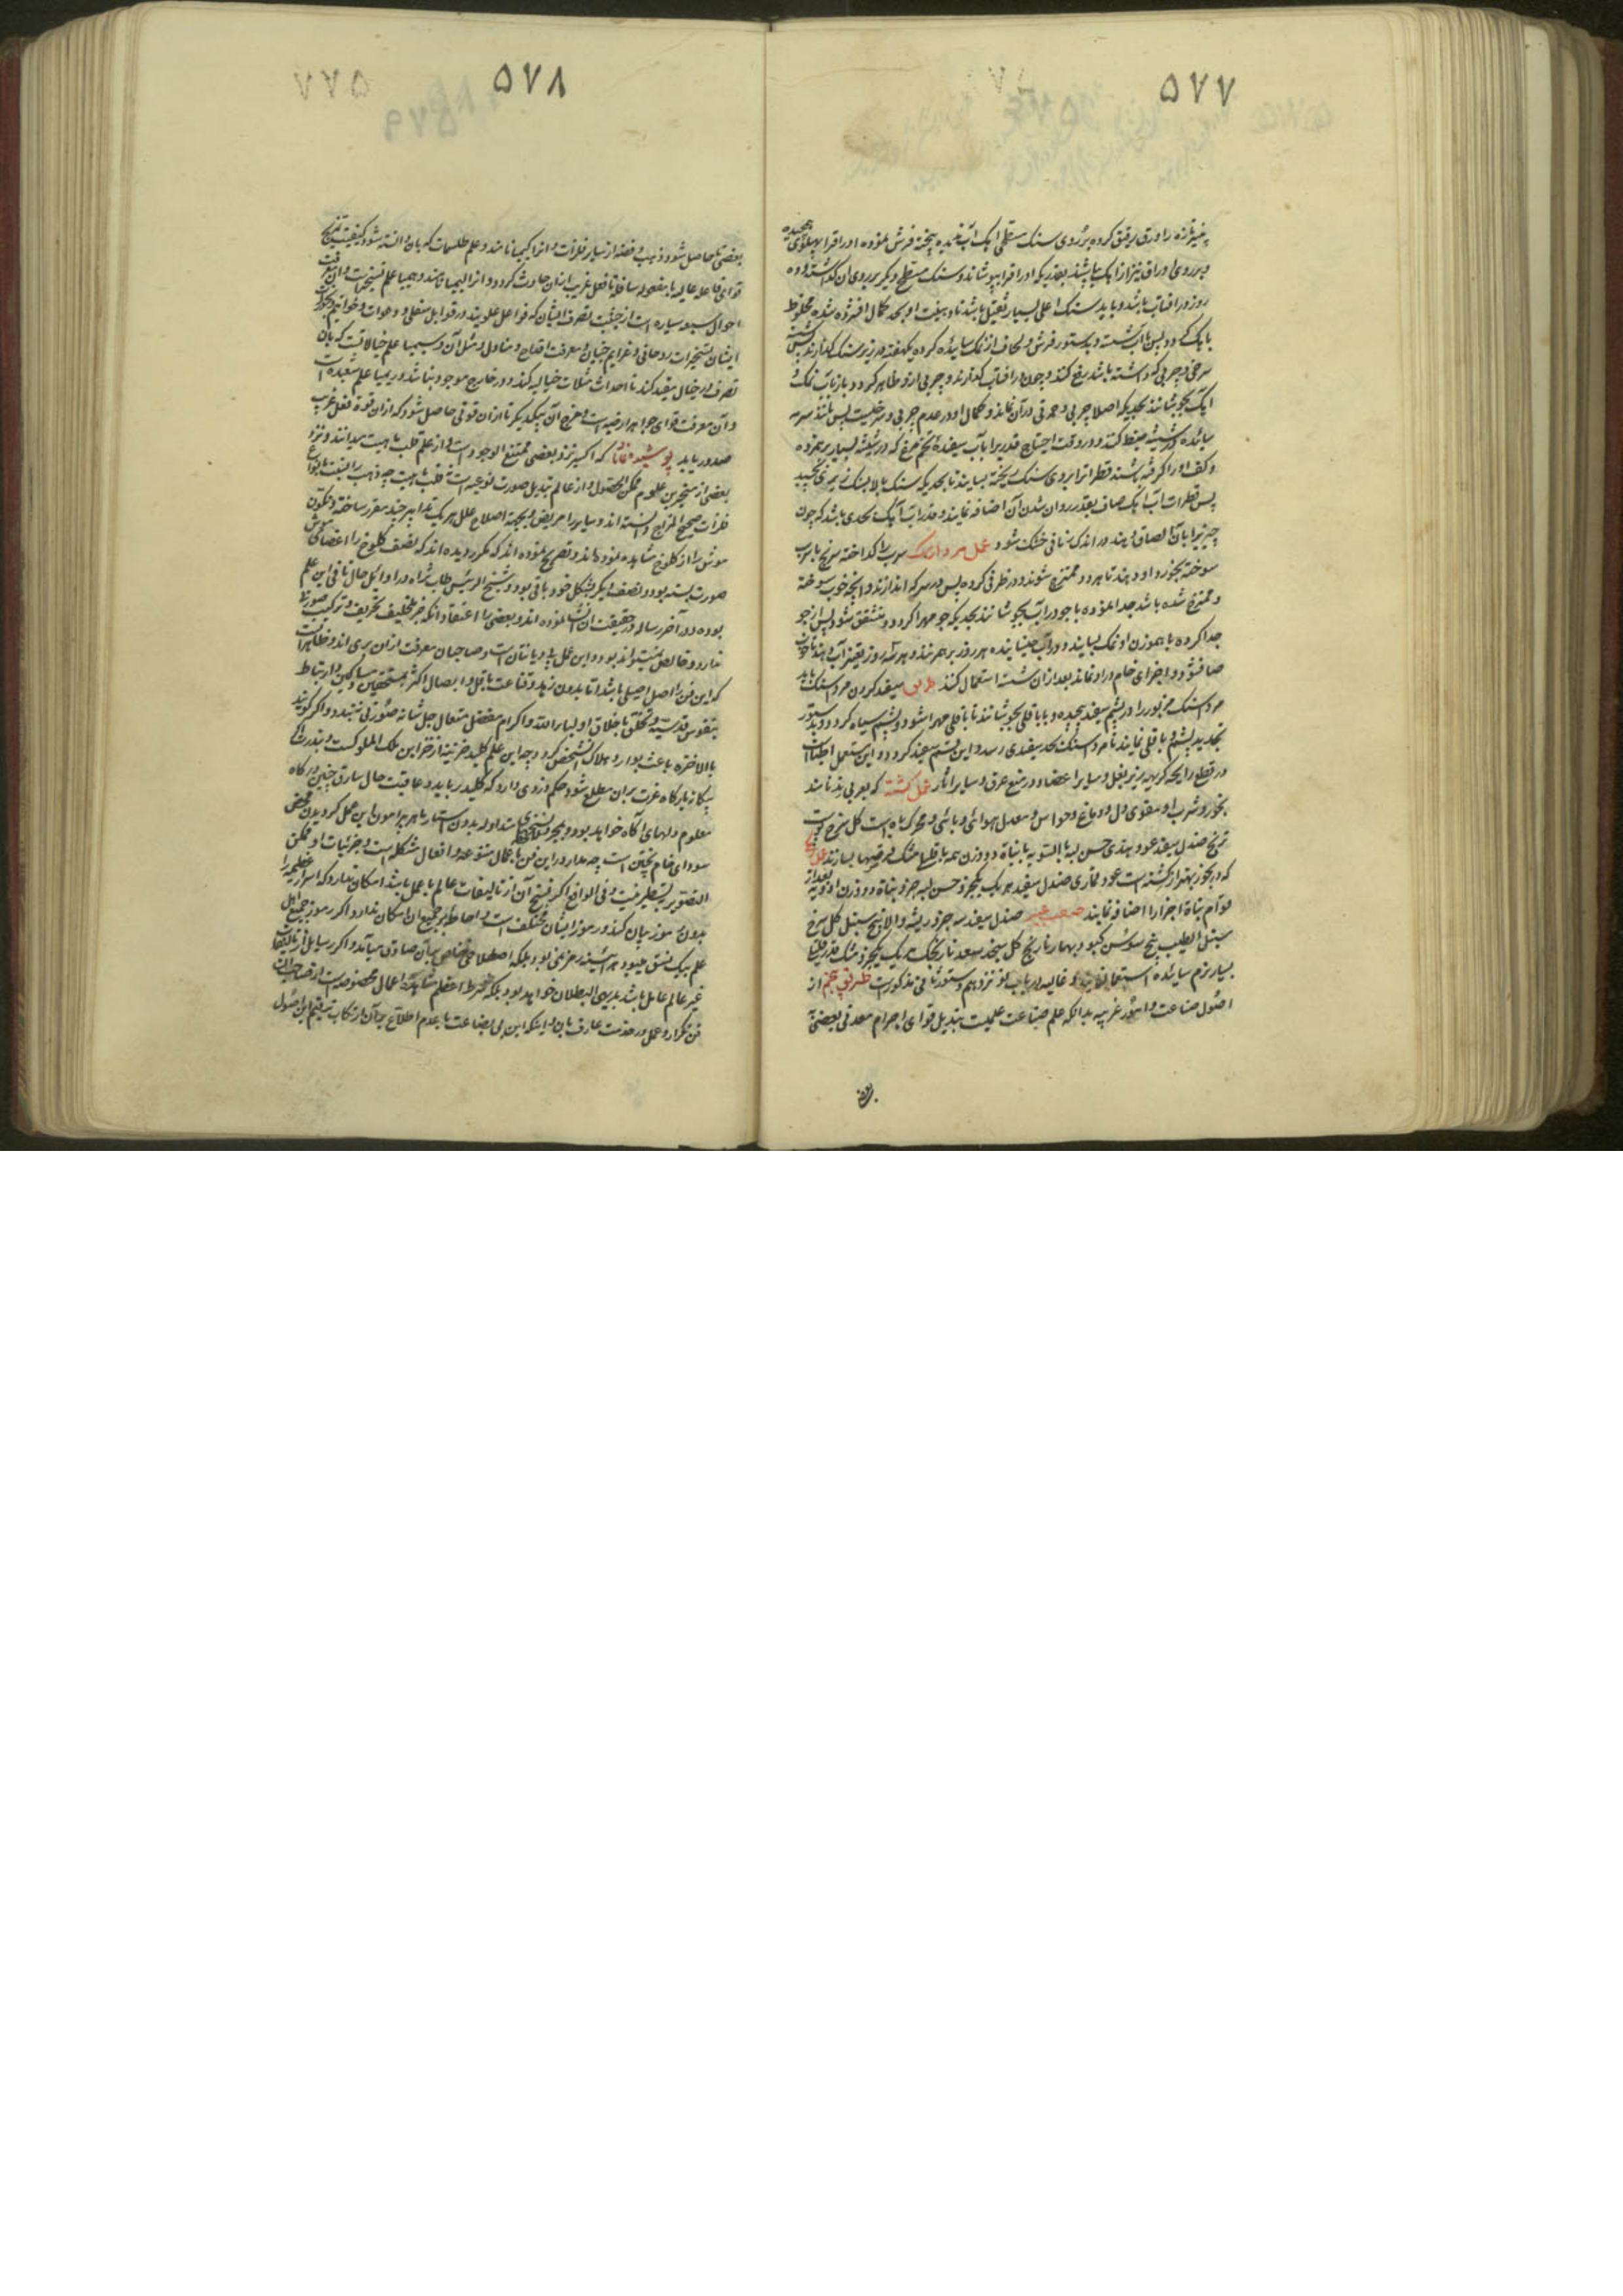 ۵۷۷
پنیر تازه را ورق برقیق کرده بر روی سنک مسطحی اهک آب ندیده بیخته فرش نموده اوراق را پهلوی
و بر روی اوراق نیز از اهک بپاشند بقدریکه اوراق را بپوشاند و سنک مسطح دیکر بر روی ان کذاشته و ده
روز در افتاب باشد و باید سنک اعلی بسیار ثقیل باشد تا دهنیت او بحد کمال افشرده شده مخلوط
باهک کردد پس باب شسته و بدستور فرش و لحاف از نمک ساییده کرده یکهفته در زیر سنک کذارند
سرخی و چربی که داشته باشد رفع کند و چون در افتاب کذارند و چربی ازو ظاهر کردد باز باب نمک و
اهک بجوشانند بحدیکه اصلا چربی و حمرتی در آن نماند و کمال او در عدم چربی و سرخیست پس مانند سرمه
ساییده در شیشه ضبط کنند و در وقت احتیاج قدری را باب سفیده تخم مرغ که در شیشه بسیار بر هم زده
و کف او را کرفته باشند قطره قطره بر روی سنک ریخته بسایند تا بحدیکه سنک بالا بسنک زیرین چسبد
پس قطرات آب اهک صاف بقدر روان شدن آن اضافه نمایند و قدر آب اهک بحدی باشد که چون
چیزی را بان الصاق دهند در اندک زمانی خشک شود عمل مرداسنک سرب را کداخته سرنج یا سرب
سوخته بخورد او دهند تا هر دو ممتزج شوند و در ظرفی کرده پس در سرکه اندازند و انچه خوب سوخته
و ممتزج شده باشد جدا نموده با جو در آب بجوشانند بحدیکه جو مهرا کردد و منشقق شود پس از جو
جدا کرده با هموزن او نمک بسایند و در آب خیسانیده هر روز بر هم زنند و هر سه روز تغییر آب دهند تا خوب
صاف شود و اجزای خام در او نماند بعد از ان شسته استعمال کنند طریق سفید کردن مرداسنک باید
مرداسنک مزبور را در پشم سفید پیچیده و با باقلی بجوشانند تا باقلی مهرا شود و پشم سیاه کردد و بدستور
تجدید پشم و باقلی نمایند تا مرداسنک بحد سفیدی رسد و این قسم سفید کردد و این مستعمل اطباست
در قطع رایحه کریهه زیر بغل و سایر اعضا و در منع عرق و سایر آثار عمل کشته که بعربی ند نامند
بخور و شرب او مقوی دل و دماغ و حواس و معدل هوائی وبائی و محرک باه است کل سرخ پوست
ترنج صندل سفید عود هندی حسن لبه بالسویه با نبات دو وزن همه باقلیها مشک قرصها بسازند
که در بخور بهتر از کشته است عود قماری صندل سفید هر یک یکجزو حسن لبه جزو نبات دو وزن ادویه بعد از
قوام نبات اجزا را اضافه نمایند صفت عبیر صندل سفید سه جزو ریشه والا بیخ سنبل کل سرخ
سنبل الطیب بیخ سوسن کبود بهار نارنج کل بیخ سعد نارنجک هر یک یکجزو مشک قدر قلیل
بسیار نرم ساییده استعمال نمایند و غالیه در باب لوز نزدهم دستور ثانی مذکور است طریق پنجم از
اصول صناعت و امور غریبه بدانکه علم صناعت علمیست بتبدیل قوای اجرام معدنی ببعضی
بعضی
۵۷۸
ببعضی تا حاصل شود ذهب و فضه از سایر فلزات و انرا کیمیا نامند و علم طلسمات که بان دانسته شود کیفیت تمزیج
قوای فاعله عالیه با منفعله سافله تا فعل غریب از ان حادث کردد و انرا لیمیا نامند و هیمیا علم تسخیرات و ان معرفت
احوال سبعه سیاره است از حیثیت تصرف ایشان که فواعل علویند در قوابل سفلی و دعوات و خواتیم و بخورات
ایشان و تسخیرات روحانی و عزایم جنیان و معرفت اقداح و منادل و مثل آن و سیمیا علم خیالاتست که بان
تصرف در خیال مقید کند تا احداث مثلات خیالیه کند و در خارج موجود نباشد و ریمیا علم شعبده است
و آن معرفت قوای جواهر ارضیه است و مزج آن بیکدیکر تا از ان قوتی حاصل شود که از ان قوة فعل غریب
صدور یابد پوشیده نماند که اکسیر نزد بعضی ممتنع الوجود است و از عالم قلب ماهیت میدانند و نزد
بعضی از متبحرین علوم ممکن الحصول و از عالم تبدیل صورت نوعیه است نه قلب ماهیت چه ذهب را بنسبت بانواع
فلزات صحیح المزاج دانسته اند و سایر را مریض و بجهت اصلاح علل هر یک تدابیر چند مقرر ساخته و تکون
موش را از کلوخ مشاهده نموده اند و تصریح نموده اند که مکرر دیده اند که نصف کلوخ را اعضای موش
صورت بسته بود و نصف دیکر بشکل خود باقی بود و شیخ الرئیس طاب ثراه در اوایل حال نافی این علم
بوده در آخر رساله در حقیقت ان انشا نموده اند و بعضی را اعتقاد آنکه جز تخلیف تحریف و ترکیب صورت
ندارد و خالص نمیتواند بود و این عمل بی دیانتانست و صاحبان معرفت از ان بری اند و ظاهر آنست
که این فن را اصل اصیلی باشد اما بدون زهد و قناعت باقل و ایصال اکثر بمستحقین و مساکین و ارتباط
بنفوس قدسیه و تخلق باخلاق اولیاء الله و اکرام مفضل متعال جل شانه صورتی نبندد و اکر کونید
بالاخره باعث بوار و هلاک شخص کردد چه این علم کلید خزینه از خزاین ملک الملوکست و بندرت اکر
بیکانه بارکاه عزت بر ان مطلع شود حکم دزدی دارد که کلید رباید و عاقبت حال سارق چنین درکاه
معلوم دلهای آکاه خواهد بود و بمجرد نسخهای متداوله بدون استاد ماهر پیرامون این عمل کردیدن محض
سودای خام پختن است چه مدار در این فن باعمال متنوعه و افعال مشکله است و جزئیات او ممکن
التصویر بتسطیر نیست و فی الواقع اکر نسخ آن از تالیفات عالم باعمل باشد امکان ندارد که اسرار عظیمه را
بدون رموز بیان کند و رموز ایشان مختلف است و احاطه بر جمیع ان امکان ندارد و اکر رموز جمیع اهل
علم بیک نسق میبود هر آینه رمزی نمی بود بلکه اصطلاحی خاص بیان صادق میآمد و اکر رسایل از تالیفات
غیر عالم عامل باشد بدیهی البطلان خواهد بود بلکه شرط اعظم مشاهده اعمال مخصوصه است از صاحب آن
فن تکرار و عمل در خدمت عارف بان و اینکه این بی بضاعت با عدم اطلاع بر آن ارتکاب ترقیم این اصول